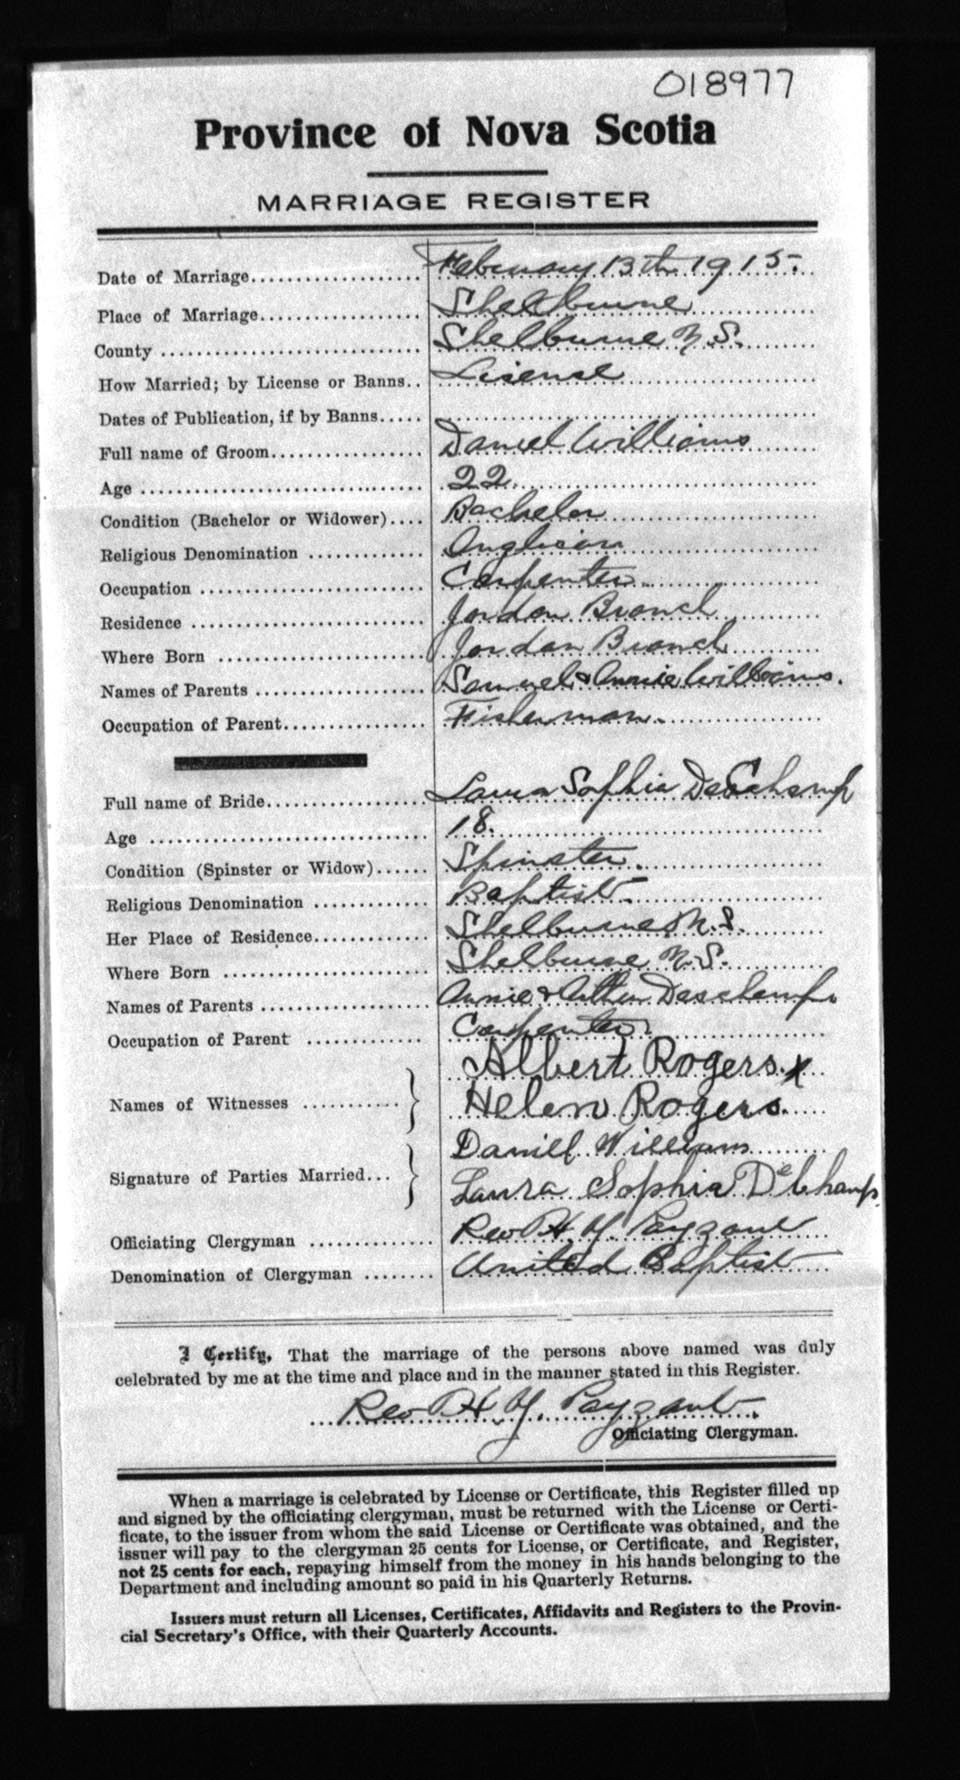 018977
Province of Nova Scotia
MARRIAGE REGISTER
Date of Marriage.................... February 13th 1915.
Place of Marriage................... Shelburne
County .............................. Shelburne N.S.
How Married; by License or Banns.. Lisense
Dates of Publication, if by Banns.....
Full name of Groom.................. Daniel Williams
Age ................................. 22
Condition (Bachelor or Widower).... Bachelor
Religious Denomination ............. Anglican
Occupation .......................... Carpenter
Residence ........................... Jordan Branch
Where Born ........................ Jordan Branch
Names of Parents .................... Samuel & Annie Williams.
Occupation of Parent................. Fisherman.
Full name of Bride................... Laura Sophia DesChamp
Age ................................. 18.
Condition (Spinster or Widow)...... Spinster.
Religious Denomination ............. Baptist.
Her Place of Residence.............. Shelburne N.S.
Where Born ........................ Shelburne N.S.
Names of Parents .................... Annie & Arthur Deschamp.
Occupation of Parent ............... Carpenter.
Albert Rogers. x
Names of Witnesses ............ } Helen Rogers.
Daniel Williams
Signature of Parties Married... } Laura Sophia DeChamp.
Officiating Clergyman .............. Rev H. Y. Payzant
Denomination of Clergyman ........ United Baptist
I Certify, That the marriage of the persons above named was duly
celebrated by me at the time and place and in the manner stated in this Register.
Rev H. Y. Payzant.
Officiating Clergyman.
When a marriage is celebrated by License or Certificate, this Register filled up
and signed by the officiating clergyman, must be returned with the License or Certi-
ficate, to the issuer from whom the said License or Certificate was obtained, and the
issuer will pay to the clergyman 25 cents for License, or Certificate, and Register,
not 25 cents for each, repaying himself from the money in his hands belonging to the
Department and including amount so paid in his Quarterly Returns.
Issuers must return all Licenses, Certificates, Affidavits and Registers to the Provin-
cial Secretary's Office, with their Quarterly Accounts.